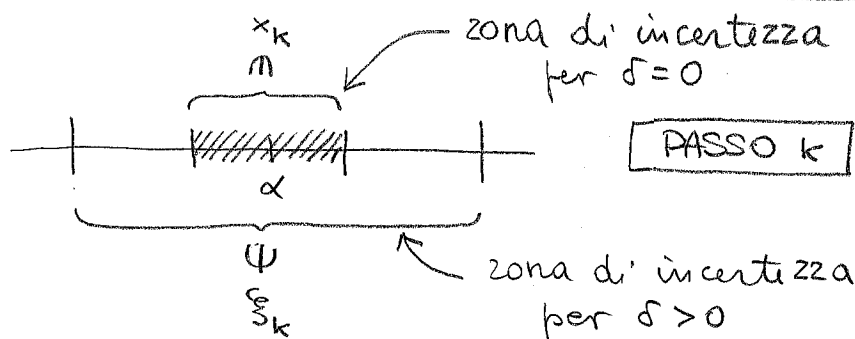 x_k
∩
zona di incertezza
per δ=0
PASSO k
α
∪
ξ_k
zona di incertezza
per δ>0